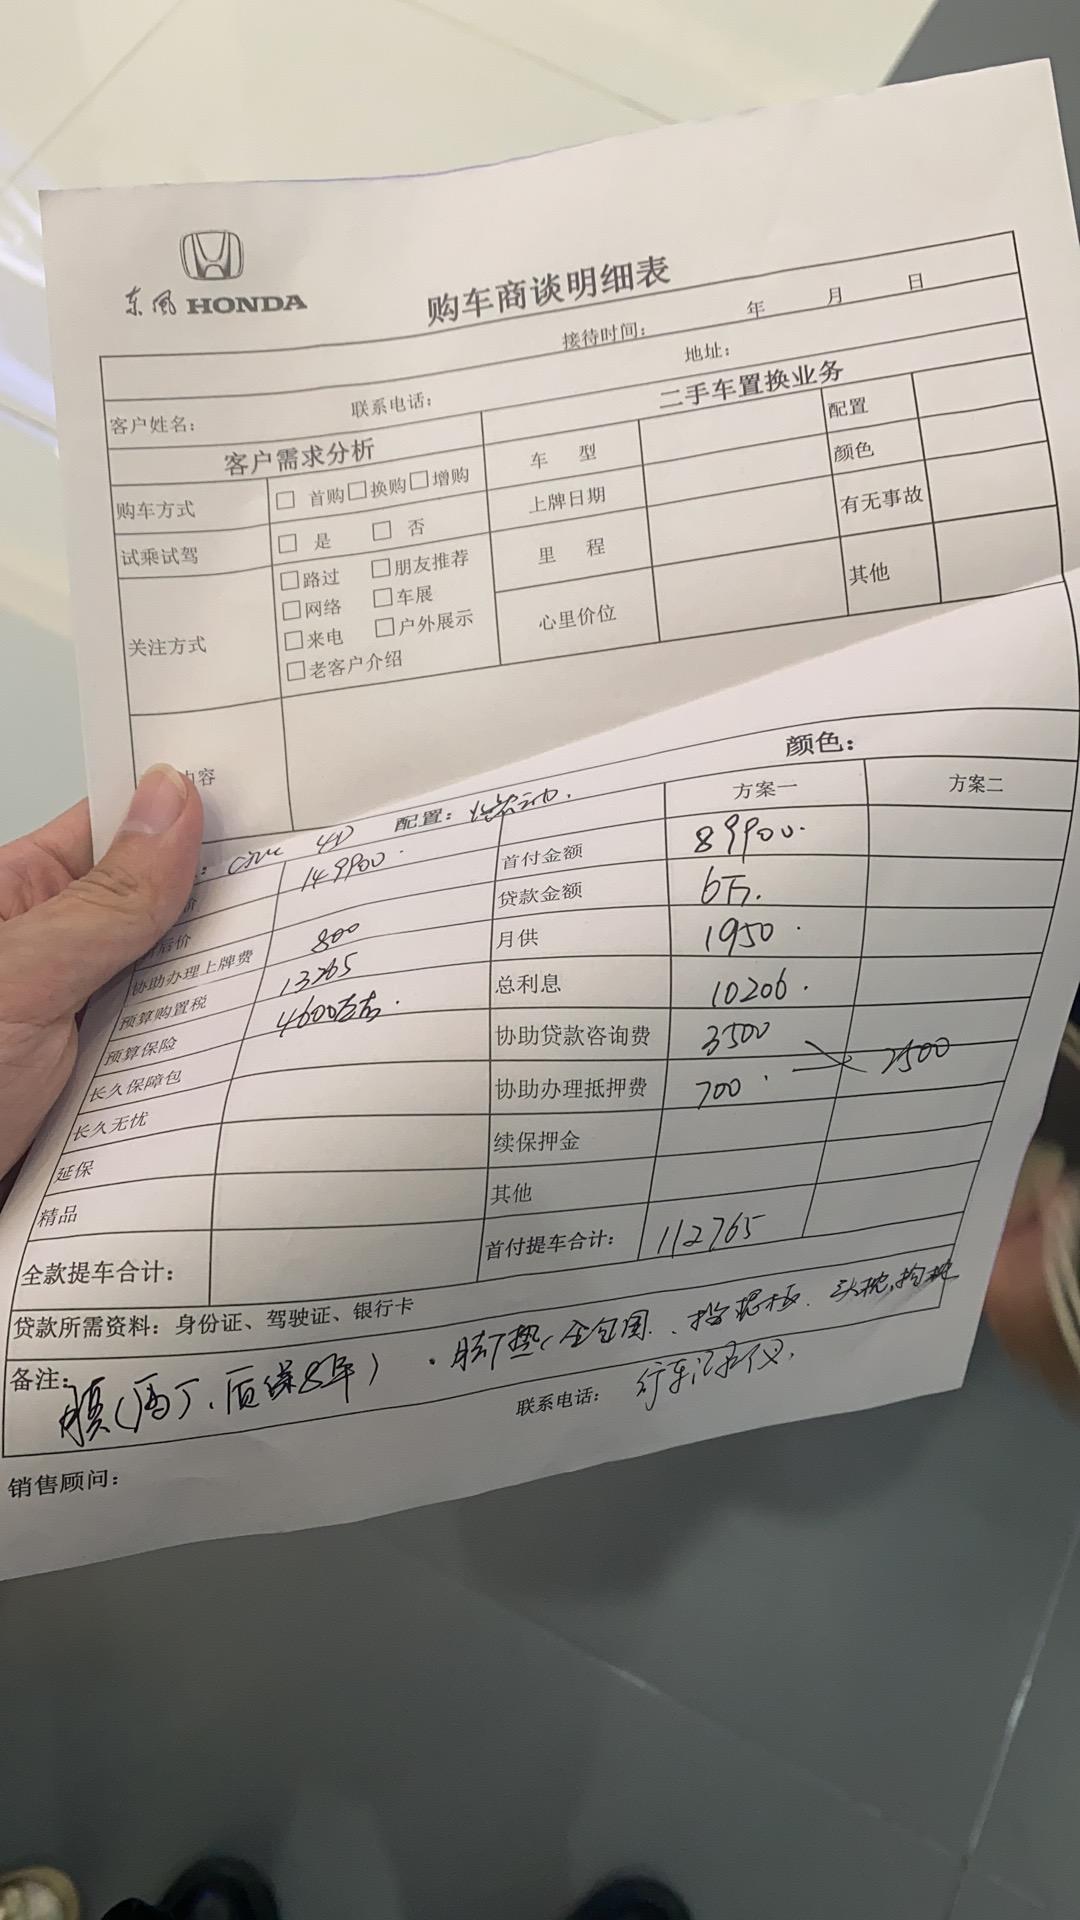 东风 HONDA
购车商谈明细表
接待时间： 年 月 日
客户姓名： 联系电话： 地址：
客户需求分析 二手车置换业务
购车方式 □ 首购□换购□增购 车 型 配置
试乘试驾 □ 是 □ 否 上牌日期 颜色
关注方式 □路过 □朋友推荐 里 程 有无事故
□网络 □车展
□来电 □户外展示 心里价位 其他
□老客户介绍
内容
颜色：
: Civic 4D 配置：
方案一 方案二
价 149900. 首付金额 89900.
后价 贷款金额 6万.
协助办理上牌费 800 月供 1950.
预算购置税 13265 总利息 10206.
预算保险 4600左右. 协助贷款咨询费 3500
长久保障包 协助办理抵押费 700. 2500
长久无忧 续保押金
延保 其他
精品 首付提车合计： 112765
全款提车合计：
贷款所需资料：身份证、驾驶证、银行卡
备注： 膜(局丁、质保8年) . 脚垫(全包围. 、挡泥板. 头枕,抱枕
行车记录仪.
销售顾问： 联系电话：